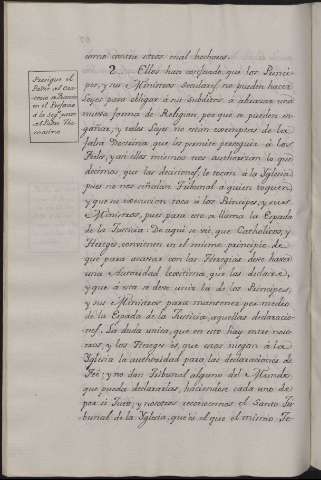 como contra otros mal hechores.
2. Ellos han confesado que los Princi-
pes, y sus Ministros seculares no pueden hacer
Leyes para obligar à sus subditos à abrazar una
nueva forma de Religion, porque se pueden en-
gañar, y tales Leyes no seran exemptas de la
falsa Doctrina que les permite perseguir à los
fieles, y asi ellos mismos nos authorizan lo que
decimos, que las decisiones, le tocan à la Yglesia
pues no nos señalan Tribunal à quien toquen;
y que su execucion toca à los Principes, y sus
Ministros, pues para eso se llama la Espada
de la Justicia. De aqui se vè, que Catholicos, y
Hereges, convienen en el mismo principio, de
que para acavar con las Heregias deve haver
una Autoridad lexitima que las declare,
y que à esta se deve unir la de los Principes,
y sus Ministros para mantener por medio
de la Espada de la Justicia, aquellas declaracio-
nes. La duda unica, que en esto hay entre noso-
tros, y los Hereges és, que estos niegan à la
Yglesia la authoridad para las declaraciones de
Fee, y no dan Tribunal alguno del Mundo,
que pueda declararlas, haciendose cada uno de
por si Juez, y nosotros reconocemos el Santo Tri-
bunal de la Yglesia, que es el que el mismo Je-
Persigue el
Padre
en el Prefacio
à la
al Padre Tho-
masino